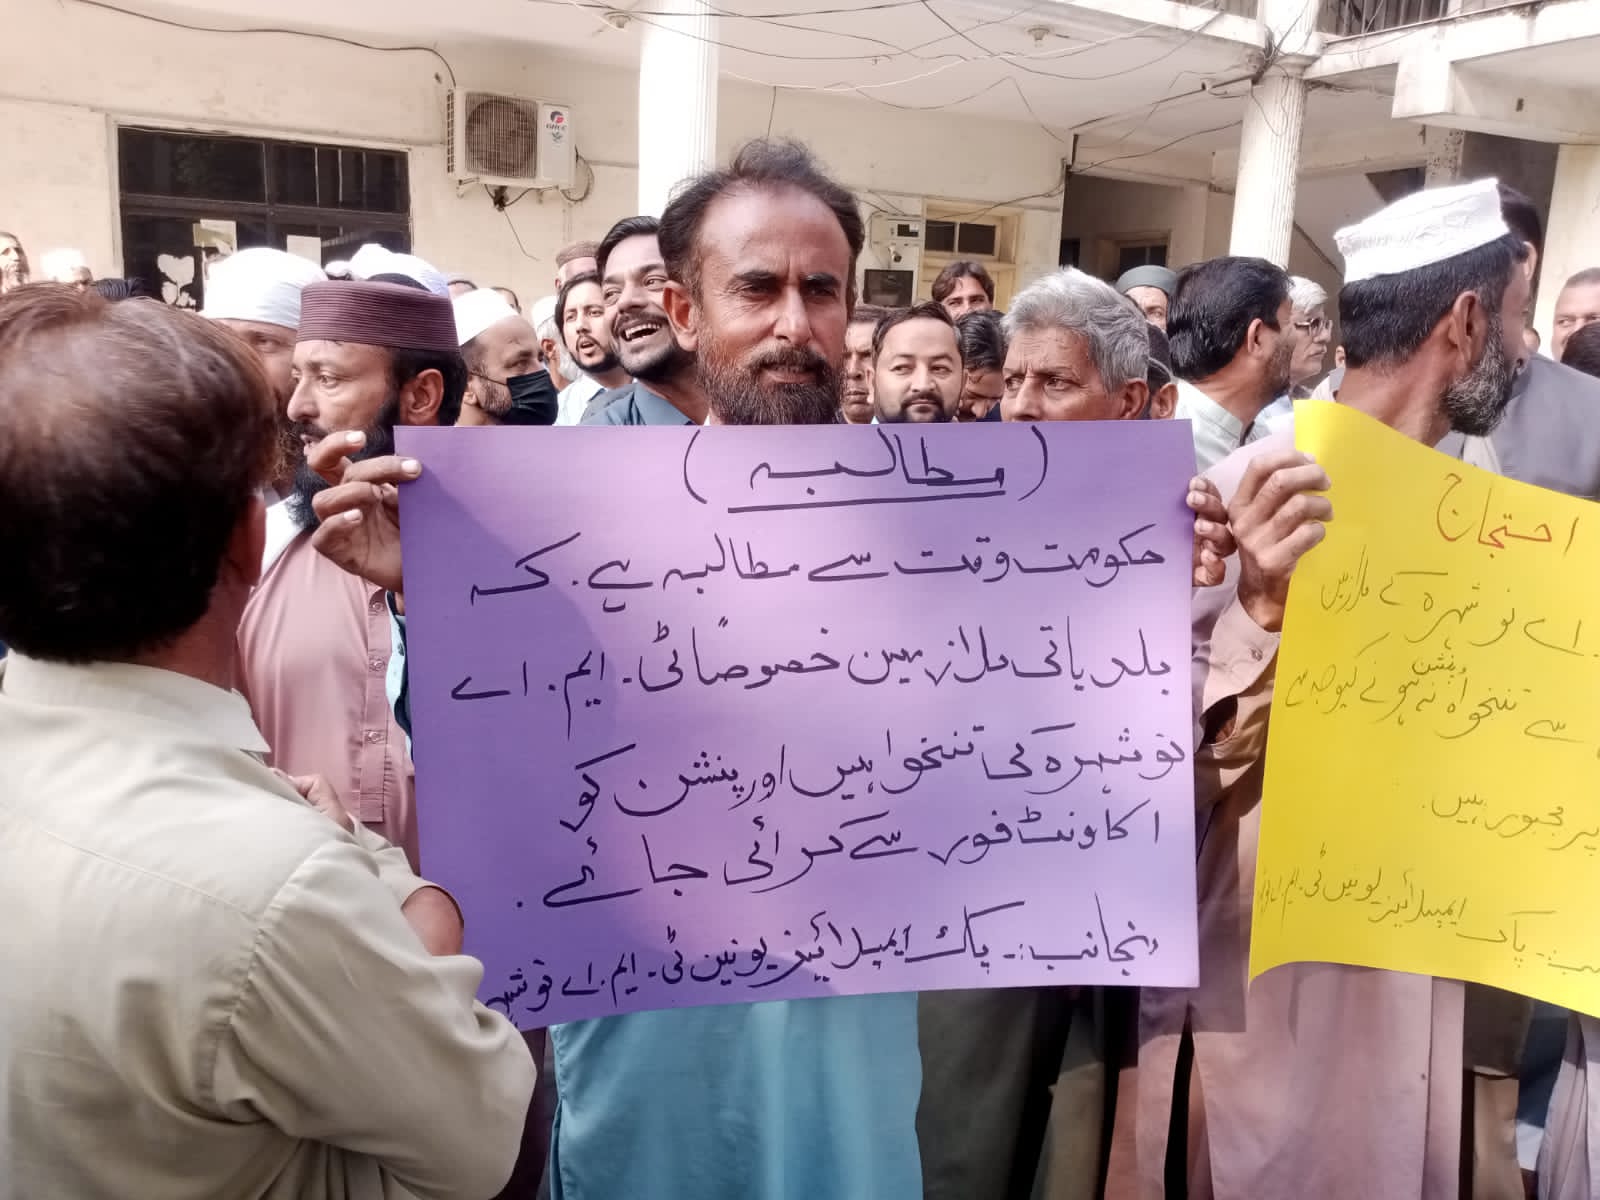 (مطالبہ)
حکومت وقت سے مطالبہ ہے. کہ
بلدیاتی ملازمین خصوصاً ٹی. ایم. اے
نوشہرہ کی تنخواہیں اور پنشن کو
اکاونٹ فور سے کرائی جائے.
منجانب:- پاک ایمپلائیز یونین ٹی. ایم. اے نوشہ
احتجاج
اے نوشہرہ کے ملازمین
سے تنخواہ پنشن نہ ہونے کیوجہ سے
پر مجبور ہیں.
پاک ایمپلائیز یونین ٹی. ایم. اے
GREE